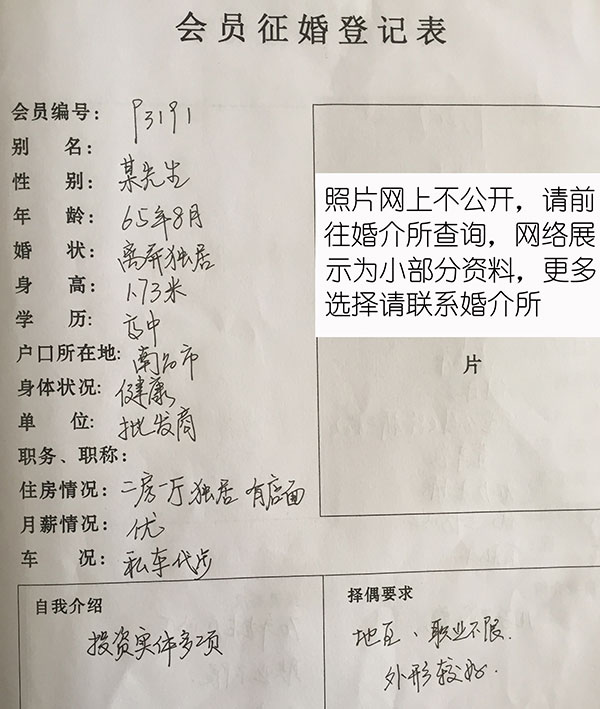 会员征婚登记表
会员编号： P3191
别 名：
性 别： 某先生
年 龄： 65年8月
婚 状： 离异独居
身 高： 1.73米
学 历： 高中
户口所在地： 南昌市
身体状况： 健康
单 位： 批发商
职务、职称：
住房情况： 二房一厅独居 有店面
月薪情况： 优
车 况： 私车代步
照片网上不公开，请前
往婚介所查询，网络展
示为小部分资料，更多
选择请联系婚介所
片
自我介绍
投资实体多项
择偶要求
地区、职业不限.
外形较好.